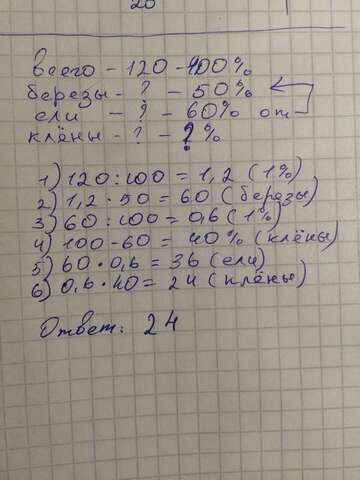 20
всего - 120 - 100%
березы - ? - 50%
ели - ? - 60% от
клёны - ? - ? %
1) 120 : 100 = 1,2 (1%)
2) 1,2 · 50 = 60 (берёзы)
3) 60 : 100 = 0,6 (1%)
4) 100 - 60 = 40% (клёны)
5) 60 · 0,6 = 36 (ели)
6) 0,6 · 40 = 24 (клёны)
Ответ: 24